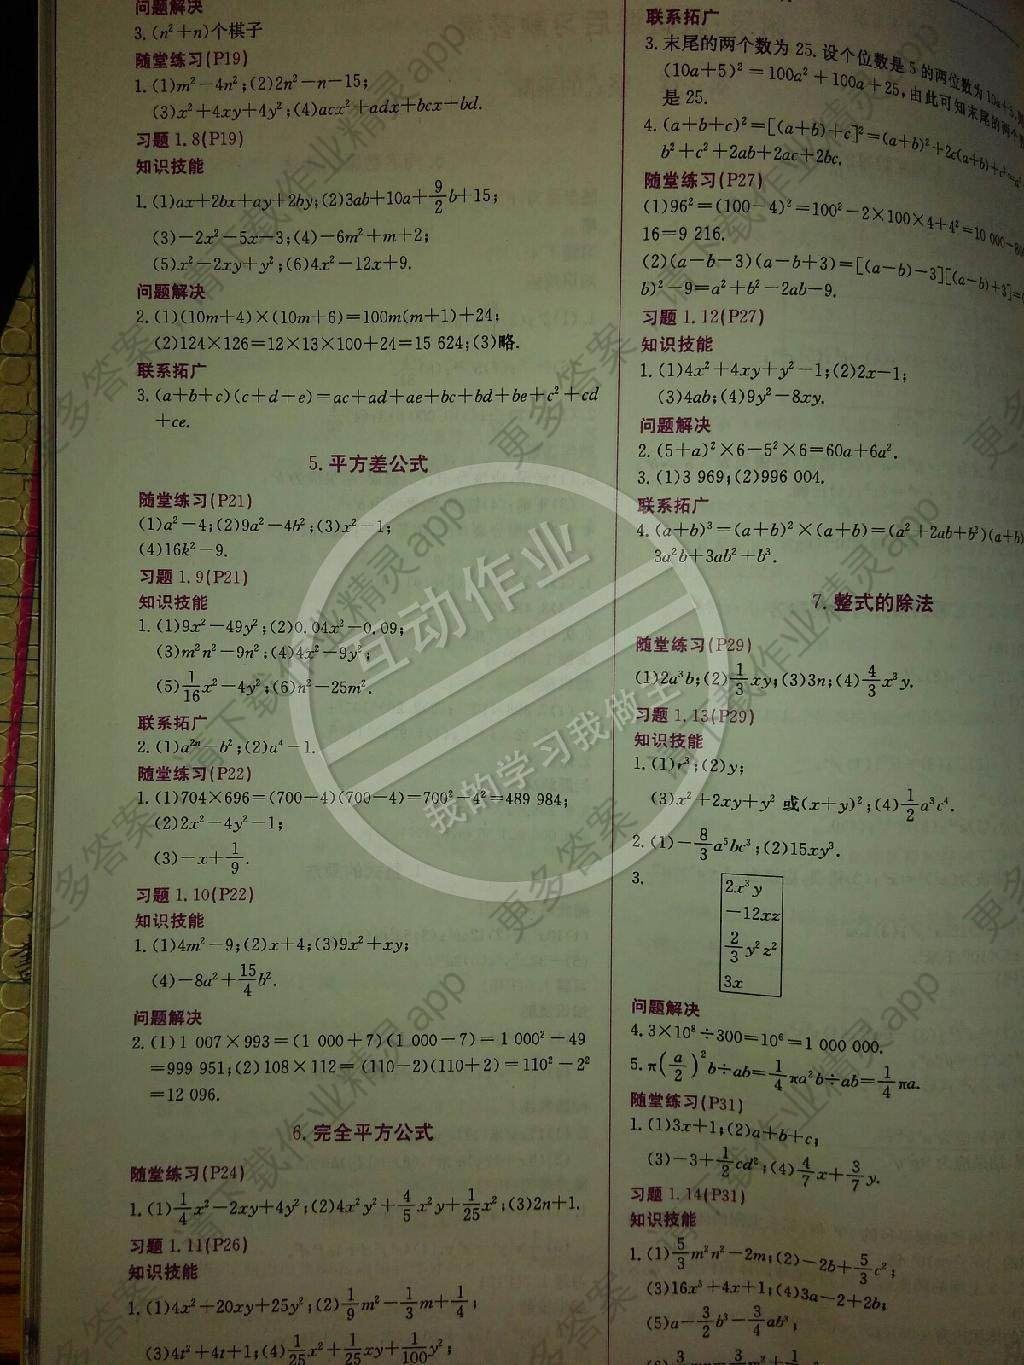 问题解决
3. (n²+n)个棋子
随堂练习(P19)
1. (1)m²-4n²;(2)2n²-n-15;
(3)x²+4xy+4y²;(4)acx²+adx+bcx-bd.
习题 1.8(P19)
知识技能
1. (1)ax+2bx+ay+2by;(2)3ab+10a+9/2b+15;
(3)-2x²-5x-3;(4)-6m²+m+2;
(5)x²-2xy+y²;(6)4x²-12x+9.
问题解决
2. (1)(10m+4)×(10m+6)=100m(m+1)+24;
(2)124×126=12×13×100+24=15 624;(3)略.
联系拓广
3. (a+b+c)(c+d-e)=ac+ad+ae+bc+bd+be+c²+cd
+ce.
5. 平方差公式
随堂练习(P21)
(1)a²-4;(2)9a²-4b²;(3)x²-1;
(4)16k²-9.
习题 1.9(P21)
知识技能
1. (1)9x²-49y²;(2)0.04x²-0.09;
(3)m²n²-9n²;(4)4x²-9y²;
(5)1/16x²-4y²;(6)n²-25m².
联系拓广
2. (1)a²ⁿ-b²;(2)a⁴-1.
随堂练习(P22)
1. (1)704×696=(700-4)(700-4)=700²-4²=489 984;
(2)2x²-4y²-1;
(3)-x+1/9.
习题 1.10(P22)
知识技能
1. (1)4m²-9;(2)x+4;(3)9x²+xy;
(4)-8a²+15/4b².
问题解决
2. (1)1 007×993=(1 000+7)(1 000-7)=1 000²-49
=999 951;(2)108×112=(110-2)(110+2)=110²-2²
=12 096.
6. 完全平方公式
随堂练习(P24)
1. (1)1/4x²-2xy+4y²;(2)4x²y²+4/5x²y+1/25x²;(3)2n+1.
习题 1.11(P26)
知识技能
1. (1)4x²+20xy+25y²;(2)1/9m²-1/3m+1/4;
(3)4t²+4t+1;(4)1/25x²+1/25xy+1/100y²;
联系拓广
3. 末尾的两个数为 25. 设个位数是 5 的两位数为 10a+5,
(10a+5)²=100a²+100a+25,由此可知末尾的两个
是 25.
4. (a+b+c)²=[(a+b)+c]²=(a+b)²+2c(a+b)+c²=a²
b²+c²+2ab+2ac+2bc.
随堂练习(P27)
(1)96²=(100-4)²=100²-2×100×4+4²=10 000-800
16=9 216.
(2)(a-b-3)(a-b+3)=[(a-b)-3][(a-b)+3]=
b)²-9=a²+b²-2ab-9.
习题 1.12(P27)
知识技能
1. (1)4x²+4xy+y²-1;(2)2x-1;
(3)4ab;(4)9y²-8xy.
问题解决
2. (5+a)²×6-5²×6=60a+6a².
3. (1)3 969;(2)996 004.
联系拓广
4. (a+b)³=(a+b)²×(a+b)=(a²+2ab+b²)(a+b)
3a²b+3ab²+b³.
7. 整式的除法
随堂练习(P29)
(1)2a³b;(2)1/3xy;(3)3n;(4)4/3x³y.
习题 1.13(P29)
知识技能
1. (1)r³;(2)y;
(3)x²+2xy+y² 或(x+y)²;(4)1/2a³c⁴.
2. (1)-8/3a⁵bc³;(2)15xy³.
3.
2x³y
-12xz
2/3y²z²
3x
问题解决
4. 3×10⁸÷300=10⁶=1 000 000.
5. π(a/2)²b÷ab=1/4πa²b÷ab=1/4πa.
随堂练习(P31)
1. (1)3x+1;(2)a+b+c;
(3)-3+1/2cd²;(4)4/7x+3/7y.
习题 1.14(P31)
知识技能
1. (1)5/3m²n²-2m;(2)-2b+5/3c²;
(3)16x³+4x+1;(4)3a-2+2b;
(5)a-3/2b³-3/4ab³;
互动作业
我的学习我做主
更多答案 请下载作业精灵app